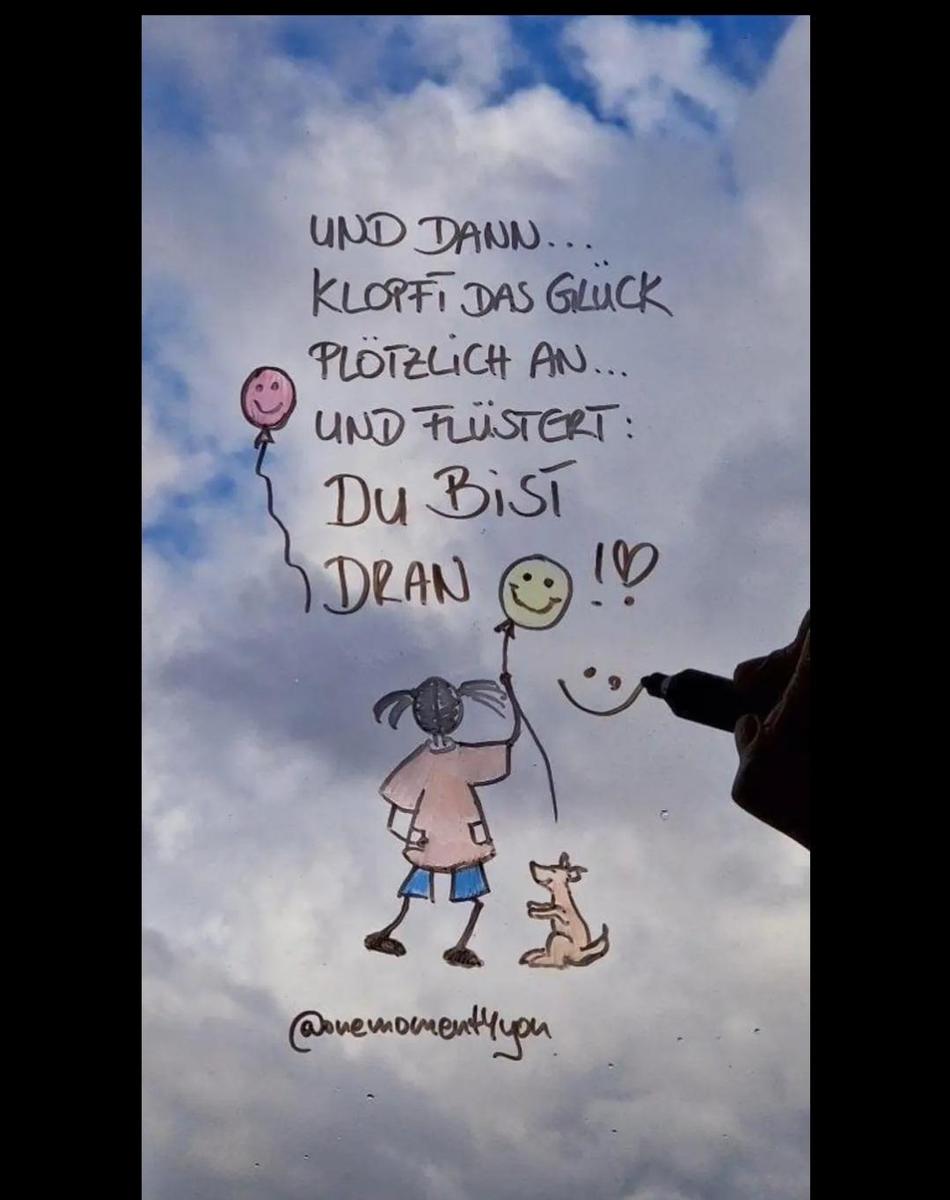 UND DANN...
KLOPFT DAS GLÜCK
PLÖTZLICH AN...
UND FLÜSTERT:
DU BIST
DRAN !♡
@onemoment4you